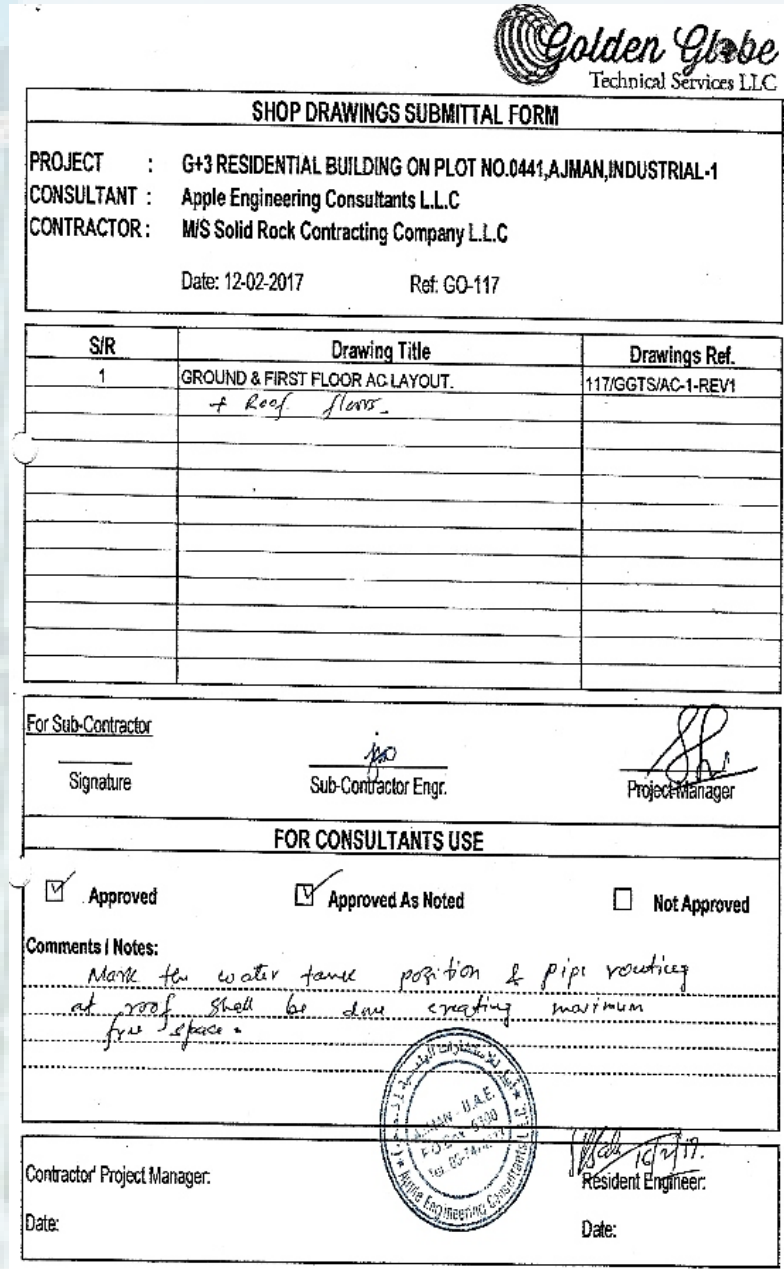 Golden Globe
Technical Services LLC
SHOP DRAWINGS SUBMITTAL FORM
PROJECT : G+3 RESIDENTIAL BUILDING ON PLOT NO.0441,AJMAN,INDUSTRIAL-1
CONSULTANT : Apple Engineering Consultants L.L.C
CONTRACTOR : M/S Solid Rock Contracting Company L.L.C
Date: 12-02-2017 Ref: GO-117
S/R Drawing Title Drawings Ref.
1 GROUND & FIRST FLOOR AC LAYOUT. 117/GGTS/AC-1-REV1
+ Roof
For Sub-Contractor
Signature Sub-Contractor Engr. Project Manager
FOR CONSULTANTS USE
Approved Approved As Noted Not Approved
Comments / Notes:
Mark the water tank position & pipe routing
at roof shall be done creating maximum
free space.
U.A.E.
Apple Engineering Consultants
16/2/17.
Contractor' Project Manager: Resident Engineer:
Date: Date: